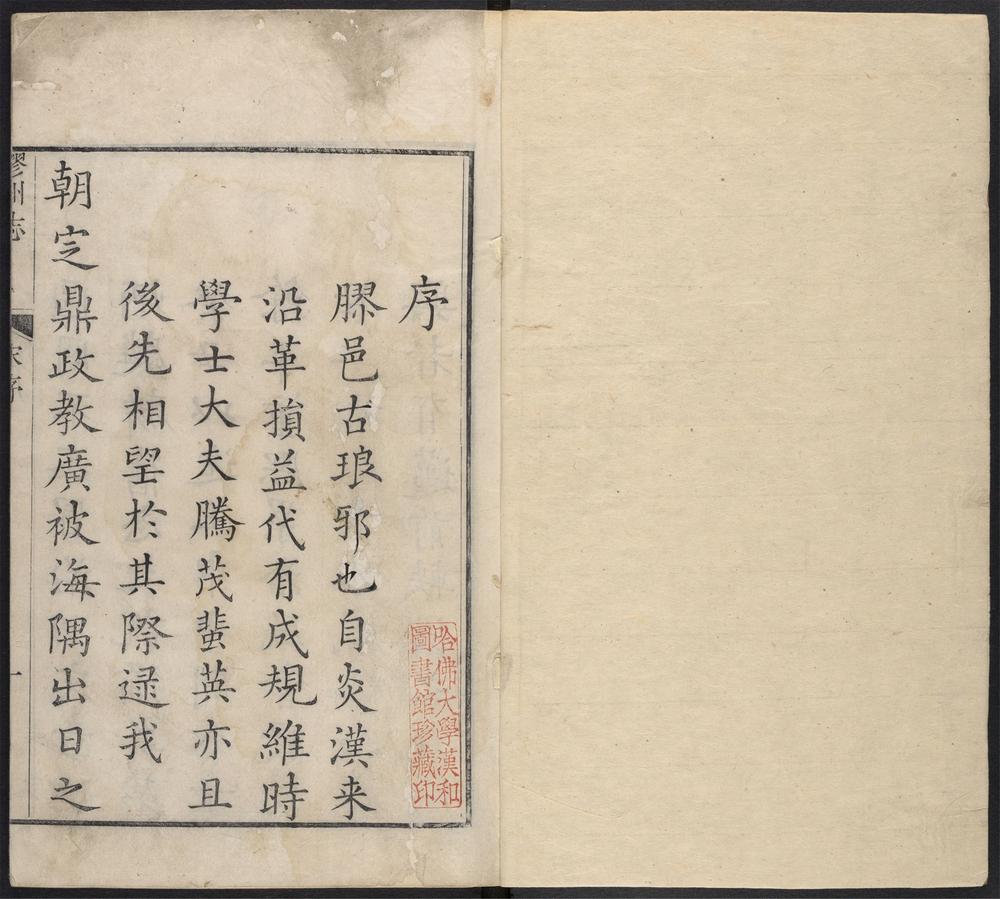 序
膠邑古琅邪也自炎漢来
沿革損益代有成規維時
學士大夫騰茂蜚英亦且
後先相望於其際逯我
朝定鼎政教廣被海隅出日之
哈佛大學漢和
圖書館珍藏印
膠州志
序
一